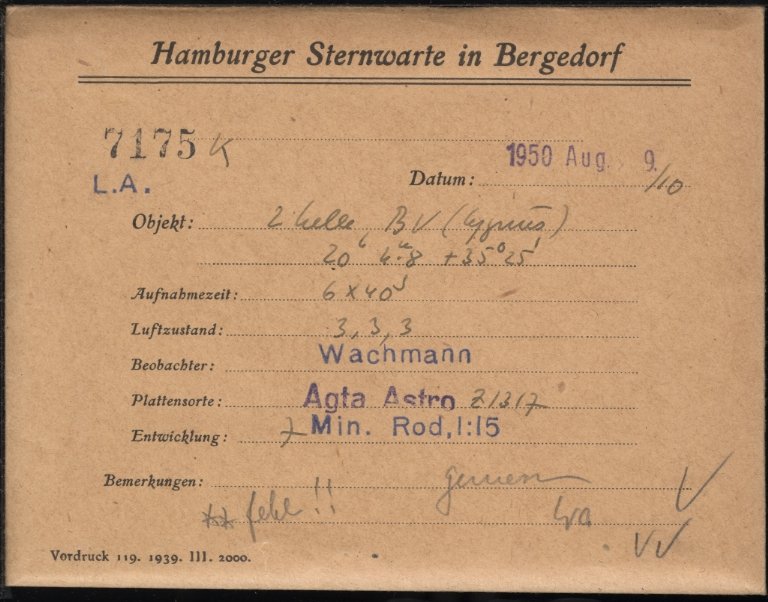 Hamburger Sternwarte in Bergedorf
7175 K
L.A.
Datum: 1950 Aug. 9./10
Objekt: 2 helle, BV (Cygnus)
20h 4m.8 +35° 25'
Aufnahmezeit: 6 x 40s
Luftzustand: 3, 3, 3
Beobachter: Wachmann
Plattensorte: Agfa Astro Z1317
Entwicklung: 7 Min. Rod, 1:15
Bemerkungen: gemessen
** fehl !!
Wa
Vordruck 119. 1939. III. 2000.